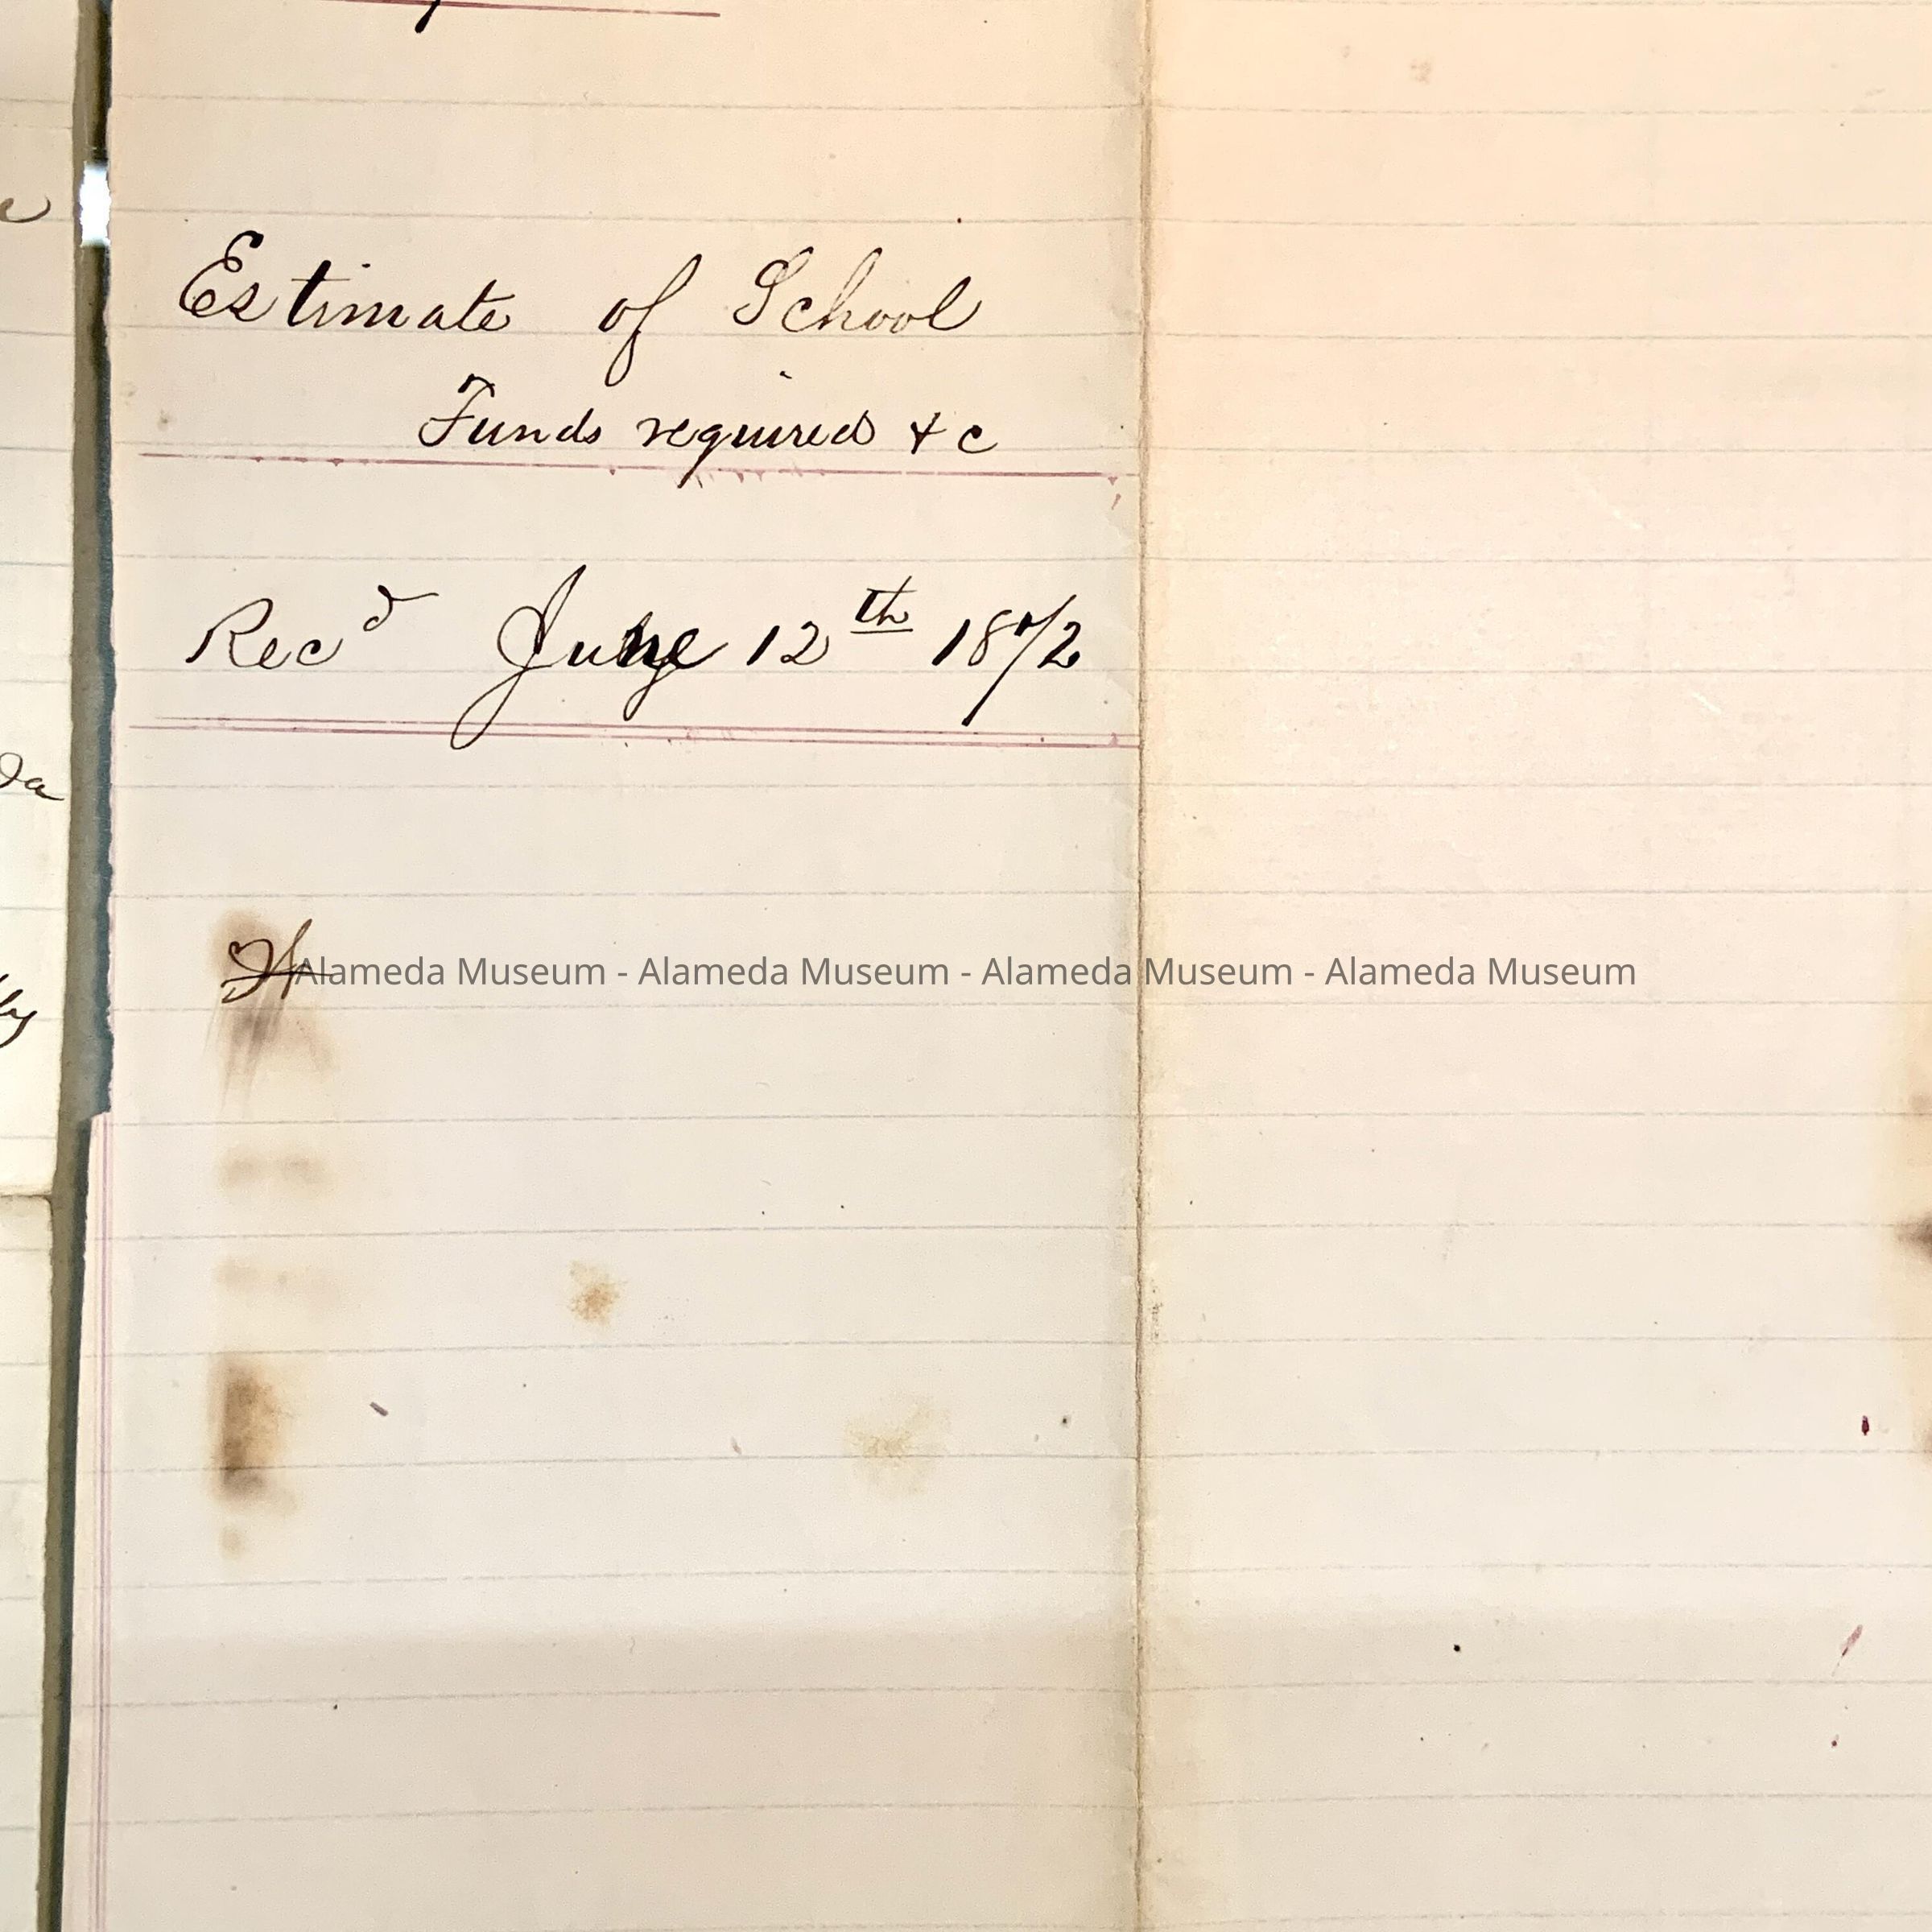 Estimate of School
Funds required & c
Rec^d June 12th 1872
Alameda Museum - Alameda Museum - Alameda Museum - Alameda Museum